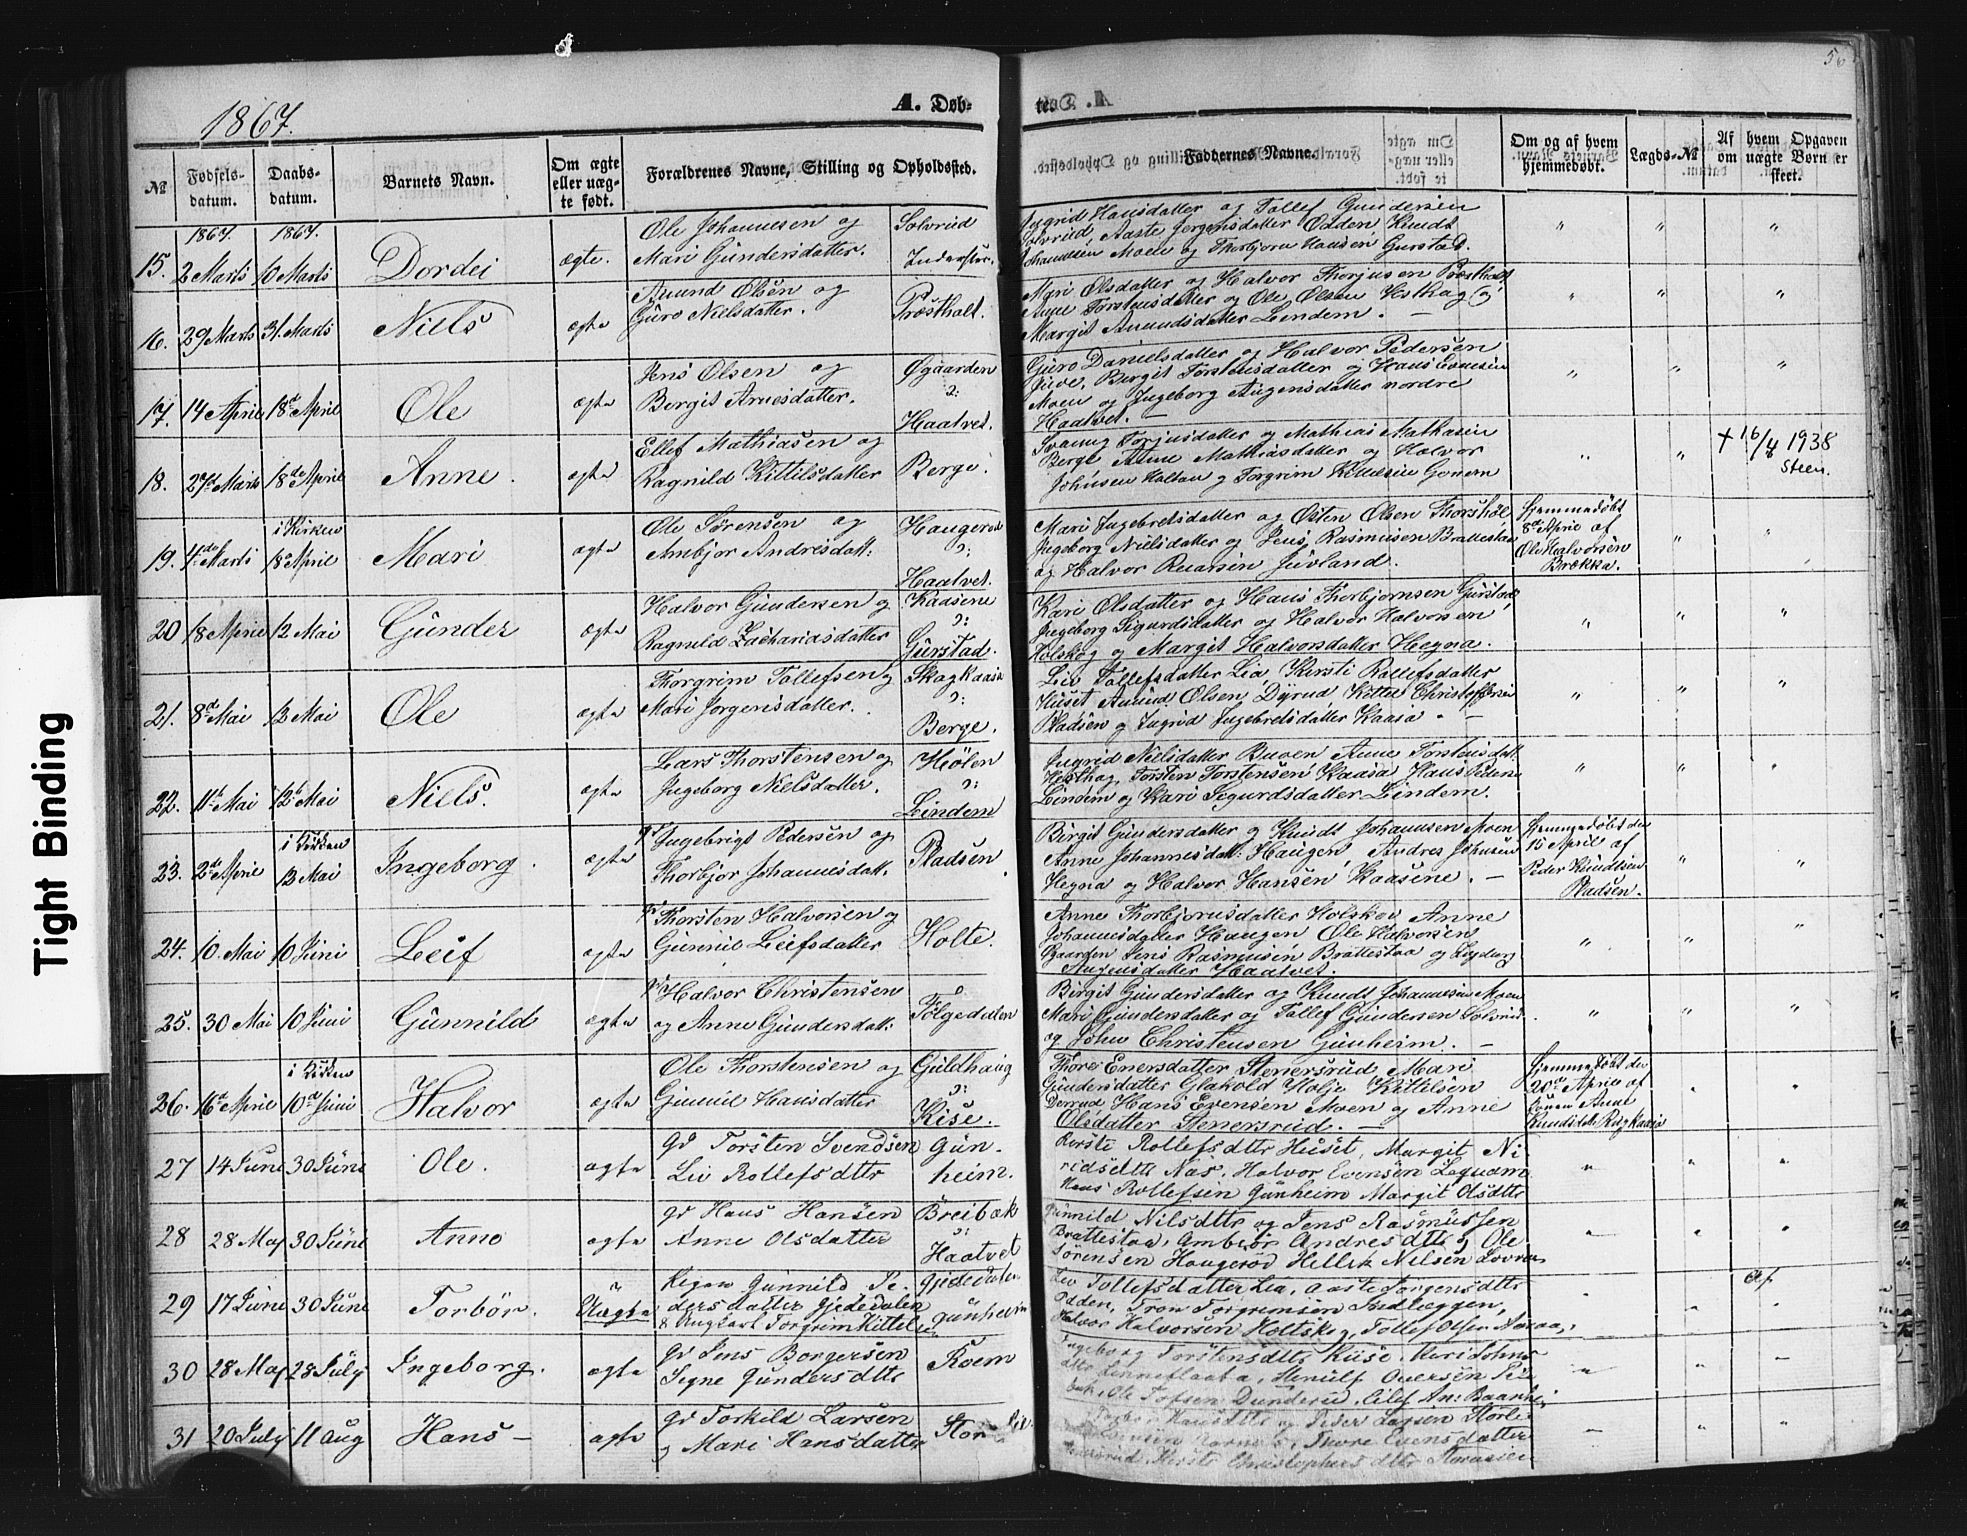 Tight Binding
1867.
A. Døb-
te. A.
56
№
Fødsels-
datum.
Daabs-
datum.
Barnets Navn.
Om ægte
eller uæg-
te født.
Forældrenes Navne, Stilling og Opholdssted.
Faddernes Navne.
Om og af hvem
hjemmedøbt.
Lægds-№
Af hvem Opgaven
om uægte Børn er
skeet.
1867. 1867.
15. 2 Marts 10 Marts Dordei ægte. Ole Johannesen og
Mari Gundersdatter. Solvrud
Ingrid Hansdatter og Tollef Gundersen
Solvrud, Aaste Jørgensdatter Odden, Knudt
Johannesen Moen og Thorbjørn Hansen Gurstad.
16. 29 Marts 31. Marts Niels ægte Amund Olsen og
Guro Nielsdatter. Præstholt.
Mari Olsdatter og Halvor Thorjusen Præstholt
Anne Torstensdatter og Ole Olsen Hestkag og
Margit Amundsdatter Lindem. —
17. 14 April 18de April Ole ægte Jens Olsen og
Borgit Arnesdatter. Øgaarden
ɔ:
Haatvet.
Guro Danielsdatter og Halvor Pedersen
Juve, Birgit Torstensdatter og Hans Evensen
Moen og Ingeborg Augensdatter nordre
Haatvet. —
18. 27de Marts 18de April Anne. ægte Ellef Mathiasen og
Ragnild Kittilsdatter Berge.
Svanug Torjusdatter og Mathias Mathasen
Berge Anne Mathiasdatter og Halvor
Johnsen Haltan og Torgrim Knudsen Gonem
+ 16/4 1938
Steen.
19. 4de Marts i Kirken
18de April Mari ægte Ole Sørensen og
Ambjør Andresdatt: Haugerød
ɔ:
Haatvet.
Mari Ingebretsdatter og Østen Olsen Thorshol,
Ingeborg Nielsdatter og Jens Rasmusen Brattestaa
og Halvor Ruarsen Juvland.
Hjemmedøbt
8de April af
Ole Halvorsen
Brækka.
20 18 April 12 Mai Gunder ægte Halvor Gundersen og
Ragnild Zachariasdatter Kaasene
ɔ:
Gurstad.
Kari Olsdatter og Hans Thorbjørnsen Gurstad,
Ingeborg Sigurdsdatter og Halvor Halvorsen
Holskog og Margit Halvorsdatter Hegna.
21. 8de Mai 12 Mai Ole ægte Thorgrim Tollefsen og
Mari Jørgensdatter. Skogkaasa
ɔ:
Berge.
Liv Tollefsdatter Lia, Kirsti Rollefsdatter
Huset Amund Olsen Dyrud Kittel Christoffersen
Pladsen og Ingrid Ingebretsdatter Kaasa. —
22. 11te Mai 12te Mai Niels. ægte Lars Thorstensen og
Ingeborg Nielsdatter. Hølen
ɔ:
Lindem
Ingrid Nielsdatter Buven Anne Torstensdatt:
Hesthag, Torsten Torstensen Kaasa Hans Pedersen
Lindem og Kari Sigurdsdatter Lindem.
23. 2de April i Kirken
12 Mai Ingeborg. ægte Ingebrigt Pedersen og
Thorbjør Johannesdatt. Pladsen
Birgit Gundersdatter og Knudt Johannsen Moen
Anne Johannesdatt: Haugen Andres Johnsen
Hegna og Halvor Hansen Kaasene. —
Hjemmedøbt den
15 April af
Peder Knudtsen
Pladsen.
24. 10. Mai 10 Juni Leif ægte Thorsten Halvorsen og
Gunnil Leifsdatter Holte.
Anne Thorbjørnsdatter Holskov Anne
Johannesdatter Haugen Ole Halvorsen
Gaarden Jens Rasmusen Brattestaa og
Augensdatter Haatvet.
25. 30 Mai 10 Juni Gunnild ægte Halvor Christensen
og Anne Gundersdatt: Følgedalen
Birgit Gundersdatter og Knudt Johannesen Moen
Mari Gundersdatter og Tollef Gundersen Solvrud.
og John Christensen Gunheim. —
26. 16de April i Kirken
10de Juni Halvor ægte Ole Thorstensen og
Gunnil Hansdatter Guldhaug
ɔ:
Kise.
Thore Enersdatter Stenersrud Mari
Gundersdatter Glahold Kittelsen
Hans Evensen Moen og Anne
Olsdatter Stenersrud. —
Hjemmedøbt den
20de April af
Anne
27 14 June 30 June Ole. ægte Torsten Svendsen
Liv Rollefsdttr Gun-
heim.
Kerste Rollefsdttr Huset, Margit Ni
Halvor Evensen
Hans Rollefsen Gunheim Margit Olsdttr
28 28 Maj 30 June Anne ægte Hans Hansen
Anne Olsdatter Breibæk
ɔ:
Haatvet
Gunnild Nilsdttr og Jens Rasmussen
Brattestaa, Ambjør Andresdttr og Ole
Sørensen Haugerød Nilsen
29 17 June 30 June Torbør. Uægte Pigen Gunnild Pe-
dersdatter Gjededalen
& Ungkarl Torgrim Kittelsen Gjededalen
Gunheim
Liv Tollefsdatter Lia, Aaste Jørgensdttr
Odden, Tron Torgrimsen
Halvor Halvorsen Tollef Olsen
30 28 Maj 28 July Ingeborg. ægte Jens Borgersen
Signe Gundersdttr Roem
Ingeborg Torstensdttr Kiise,
Ole
31 20 July 11 Aug Hans — ægte Torkild Larsen
og Mari Hansdatter
Peder Larsen
Thore Evensdatter
Kirsti Christophersdttr